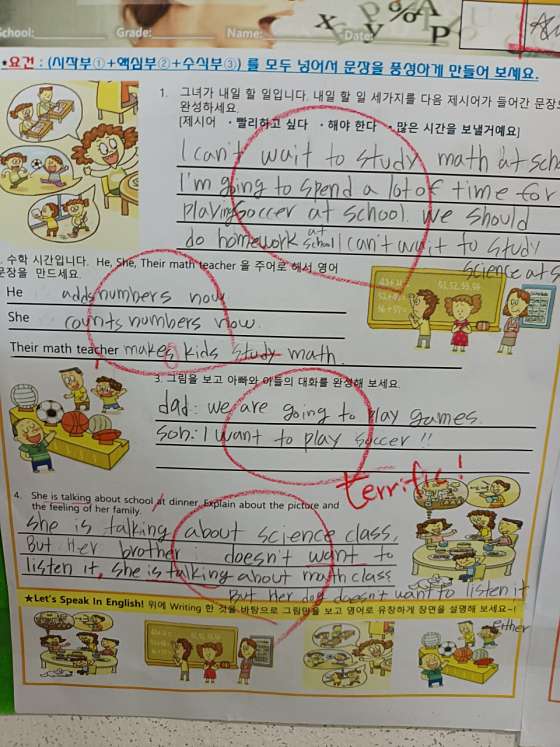 School: Grade: Name: Date:
x P y % A P
•요건 : (시작부①+핵심부②+수식부③) 를 모두 넣어서 문장을 풍성하게 만들어 보세요.
1. 그녀가 내일 할 일입니다. 내일 할 일 세가지를 다음 제시어가 들어간 문장으
완성하세요.
[제시어 ・빨리하고 싶다 ・해야 한다 ・많은 시간을 보낼거예요]
I can't wait to study math at scho
I'm going to spend a lot of time for
playing soccer at school. we should
do homework at school I can't wait to study
science at s
. 수학 시간입니다. He, She, Their math teacher 을 주어로 해서 영어
문장을 만드세요.
He adds numbers now
She counts numbers now.
Their math teacher makes kids study math.
3. 그림을 보고 아빠와 아들의 대화를 완성해 보세요.
dad: we are going to play games.
son: I want to play soccer !!
terrific!
4. She is talking about school at dinner. Explain about the picture and
the feeling of her family.
She is talking about science class,
But Her brother doesn't want to
listen it, she is talking about math class
But Her dad doesn't want to listen it
either
★Let's Speak In English! 위에 Writing 한 것을 바탕으로 그림만을 보고 영어로 유창하게 장면을 설명해 보세요~!